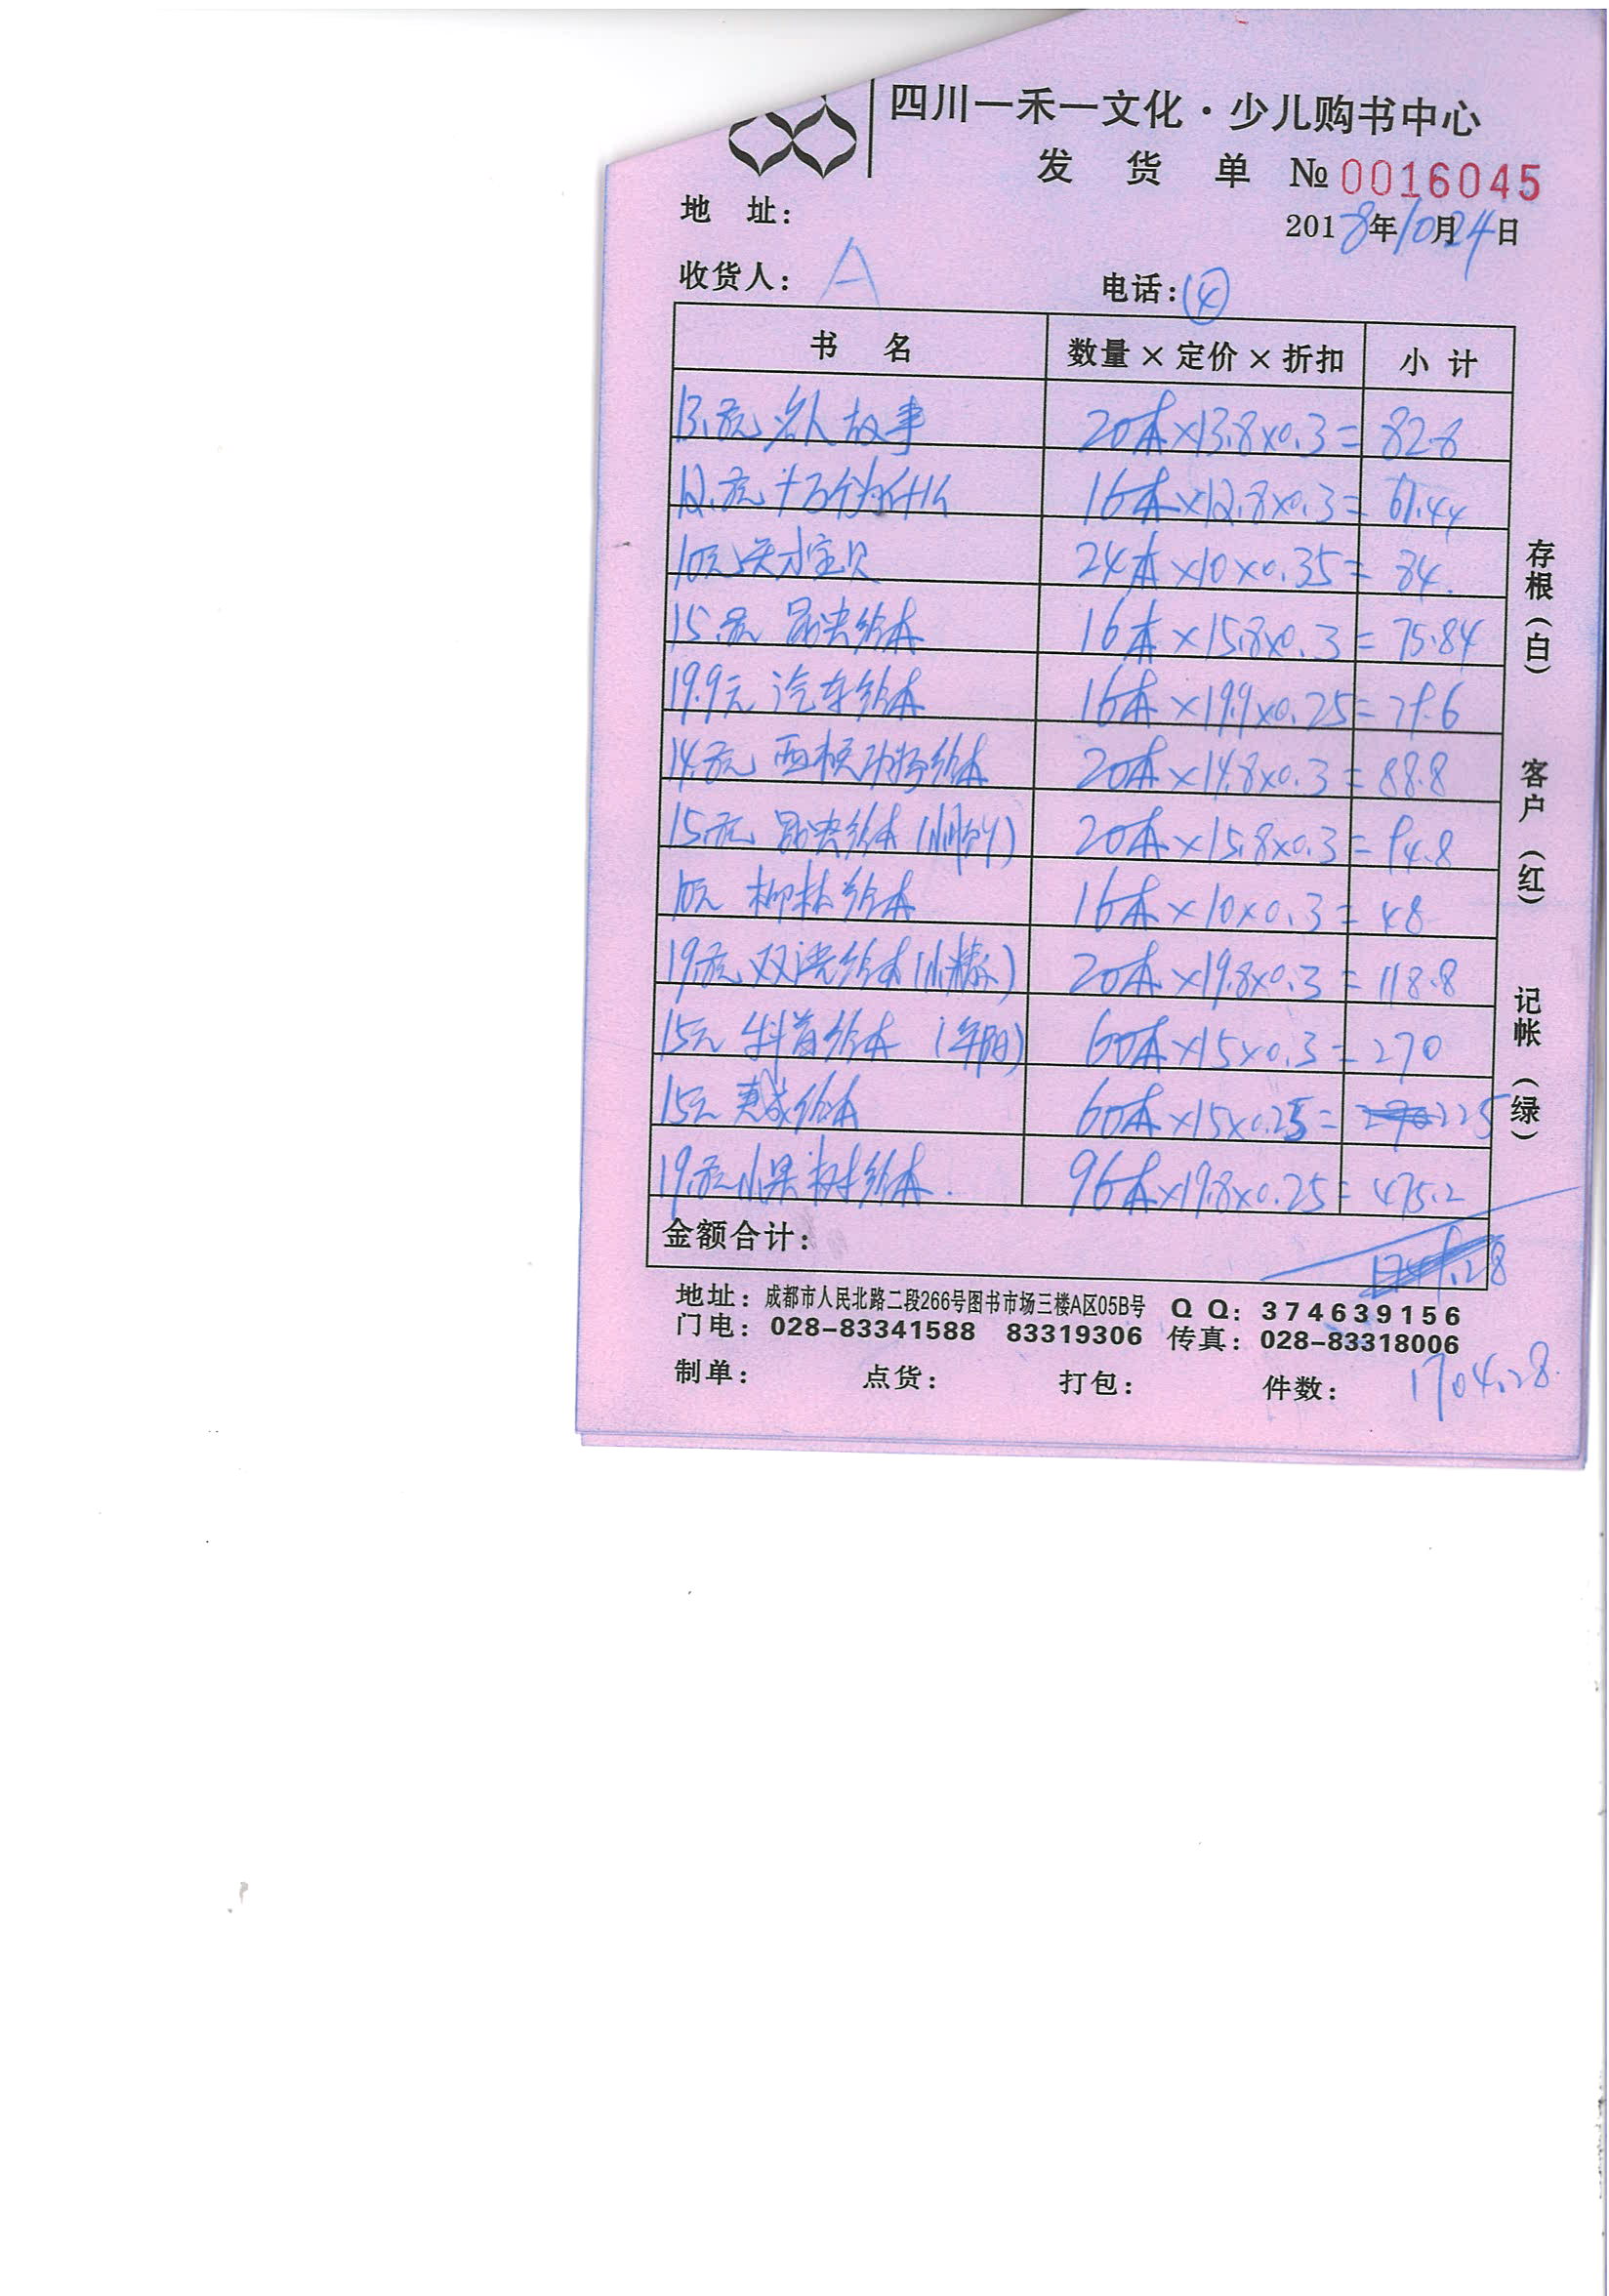 四川一禾一文化·少儿购书中心
发 货 单 № 0016045
地 址：
2018年10月24日
收货人： A 电话：④
书 名 数量×定价×折扣 小 计
13.8元 名人故事 20本×13.8×0.3= 82.8
12.8元 十万个为什么 16本×12.8×0.3= 61.44
10元 天才宝贝 24本×10×0.35= 84.
15.8元 绘本 16本×15.8×0.3= 75.84
19.9元 汽车绘本 16本×19.9×0.25= 79.6
14.8元 绘本 20本×14.8×0.3= 88.8
15.8元 绘本 20本×15.8×0.3= 94.8
10元 柳林绘本 16本×10×0.3= 48
19.8元 双语绘本 20本×19.8×0.3= 118.8
15元 绘本 60本×15×0.3= 270
15元 绘本 60本×15×0.25= 225
19.8元 小果树绘本. 96本×19.8×0.25= 475.2
金额合计：
地址：成都市人民北路二段266号图书市场三楼A区05B号 QQ：374639156
门电：028-83341588 83319306 传真：028-83318006
制单： 点货： 打包： 件数： 1704.28
存根（白） 客户（红） 记帐（绿）